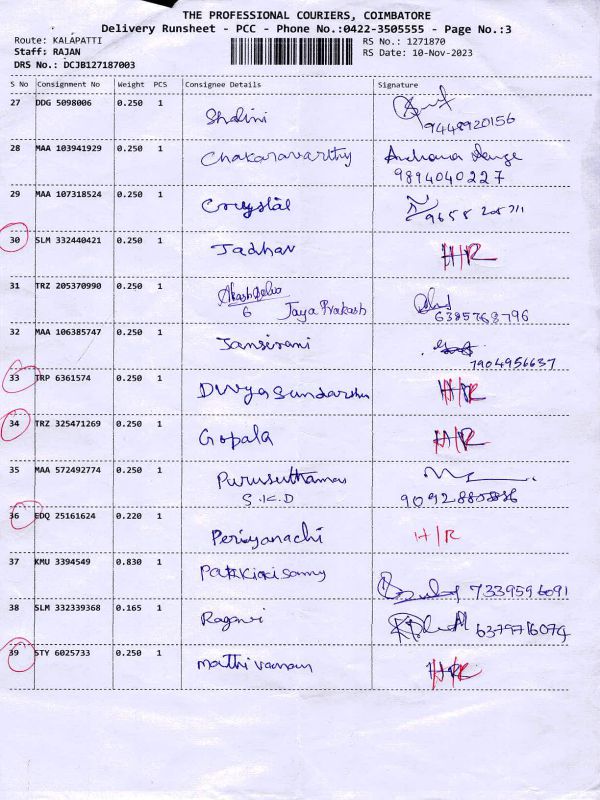 THE PROFESSIONAL COURIERS, COIMBATORE
Delivery Runsheet - PCC - Phone No.:0422-3505555 - Page No.:3
Route: KALAPATTI
RS No.: 1271870
Staff: RAJAN
RS Date: 10-Nov-2023
DRS No.: DCJB127187003
S No Consignment No Weight PCS Consignee Details Signature
27 DDG 5098006 0.250 1 Shalini
9448920156
28 MAA 103941929 0.250 1 Chakaravarthy Archana
9894040227
29 MAA 107318524 0.250 1
30 SLM 332440421 0.250 1 Jadhav H/R
31 TRZ 205370990 0.250 1
6 Jaya Prakash 6385768796
32 MAA 106385747 0.250 1 Jansirani
7904956637
33 TRP 6361574 0.250 1 H/R
34 TRZ 325471269 0.250 1 Gopala H/R
35 MAA 572492774 0.250 1
S.K.D
36 EDQ 25161624 0.220 1 Periyanachi H/R
37 KMU 3394549 0.830 1
7339596091
38 SLM 332339368 0.165 1
6379716074
39 STY 6025733 0.250 1 H/R